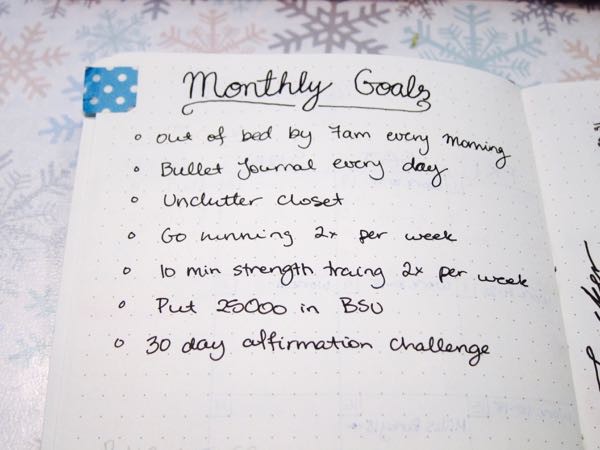 Monthly Goals
out of bed by 7am every morning
Bullet Journal every day
Unclutter closet
Go running 2x per week
10 min strength traing 2x per week
Put 25000 in BSU
30 day affirmation challenge